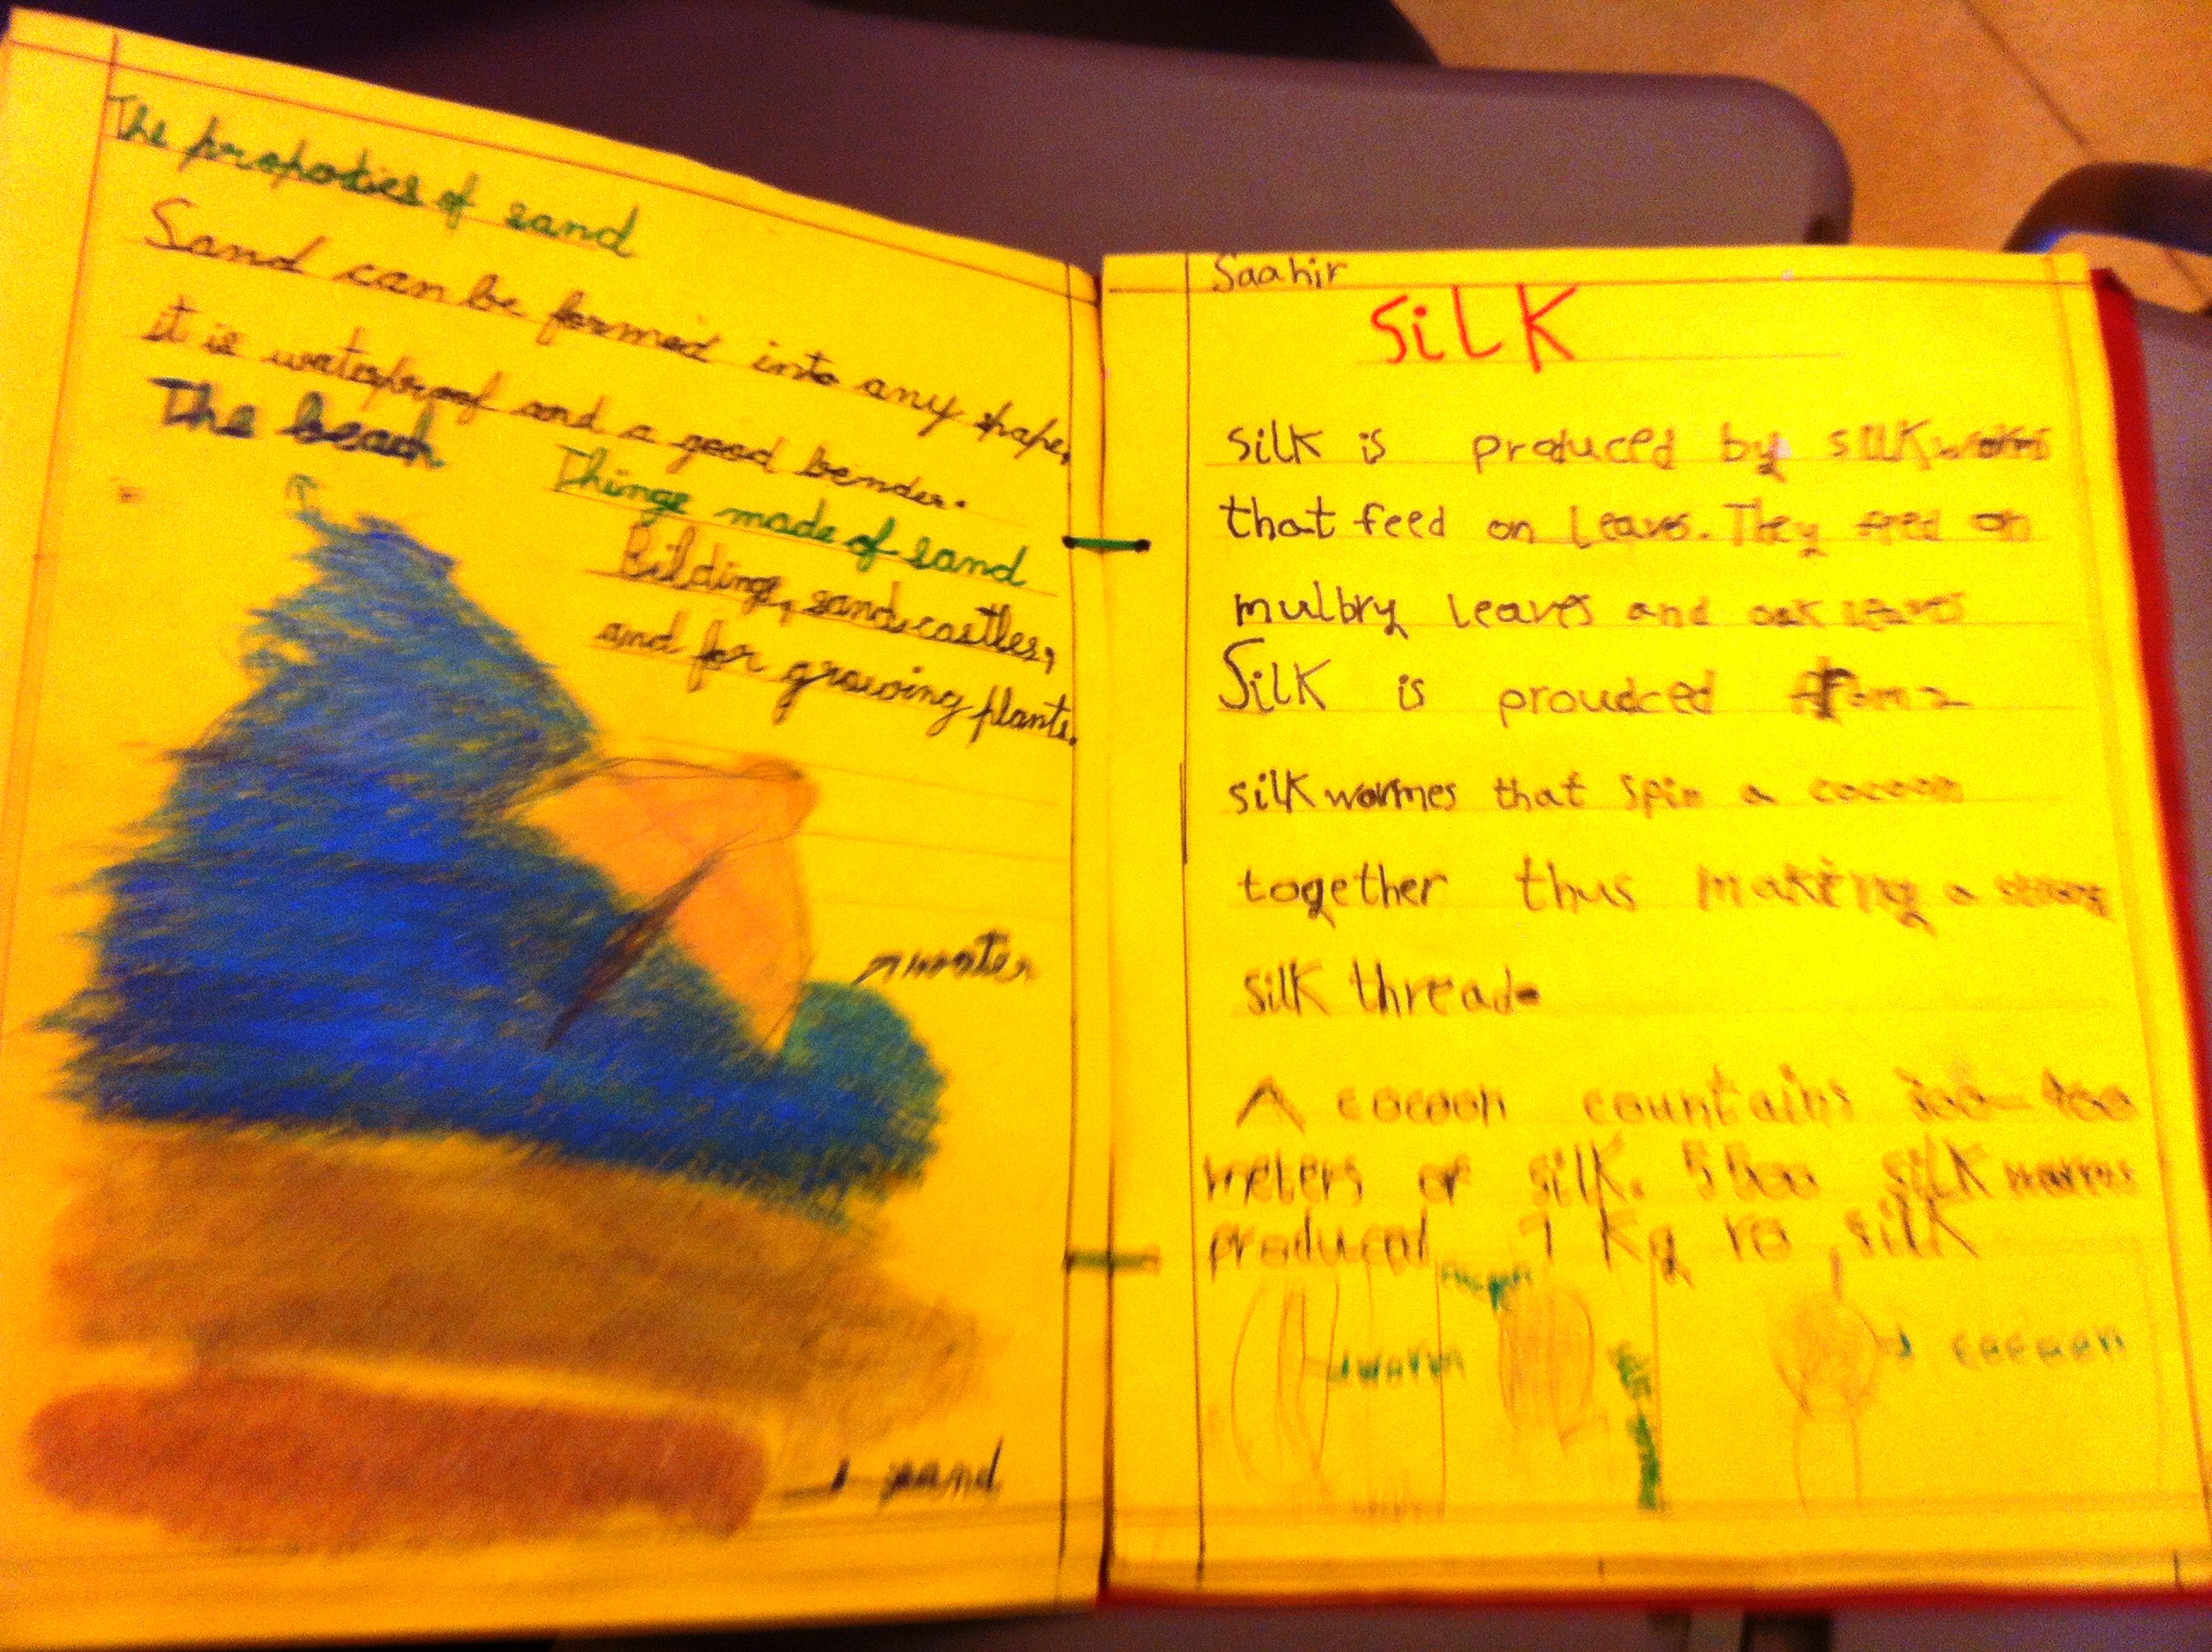 The propoties of sand
Sand can be formed into any shape,
it is waterproof and a good bender.
The beach
Things made of sand
Bildings, sandcastles,
and for growing plants.
water
sand
Saahir
SiLK
silk is produced by silkworms
that feed on leaves. They feed on
mulbry leaves and oak leaves
Silk is proudced from
silkwormes that spin a cocoon
together thus making a strong
silk thread.
A cocoon countains 300-900
meters of silk. 5500 silkworms
produced 1 Kg ro silk
worm
cocoon